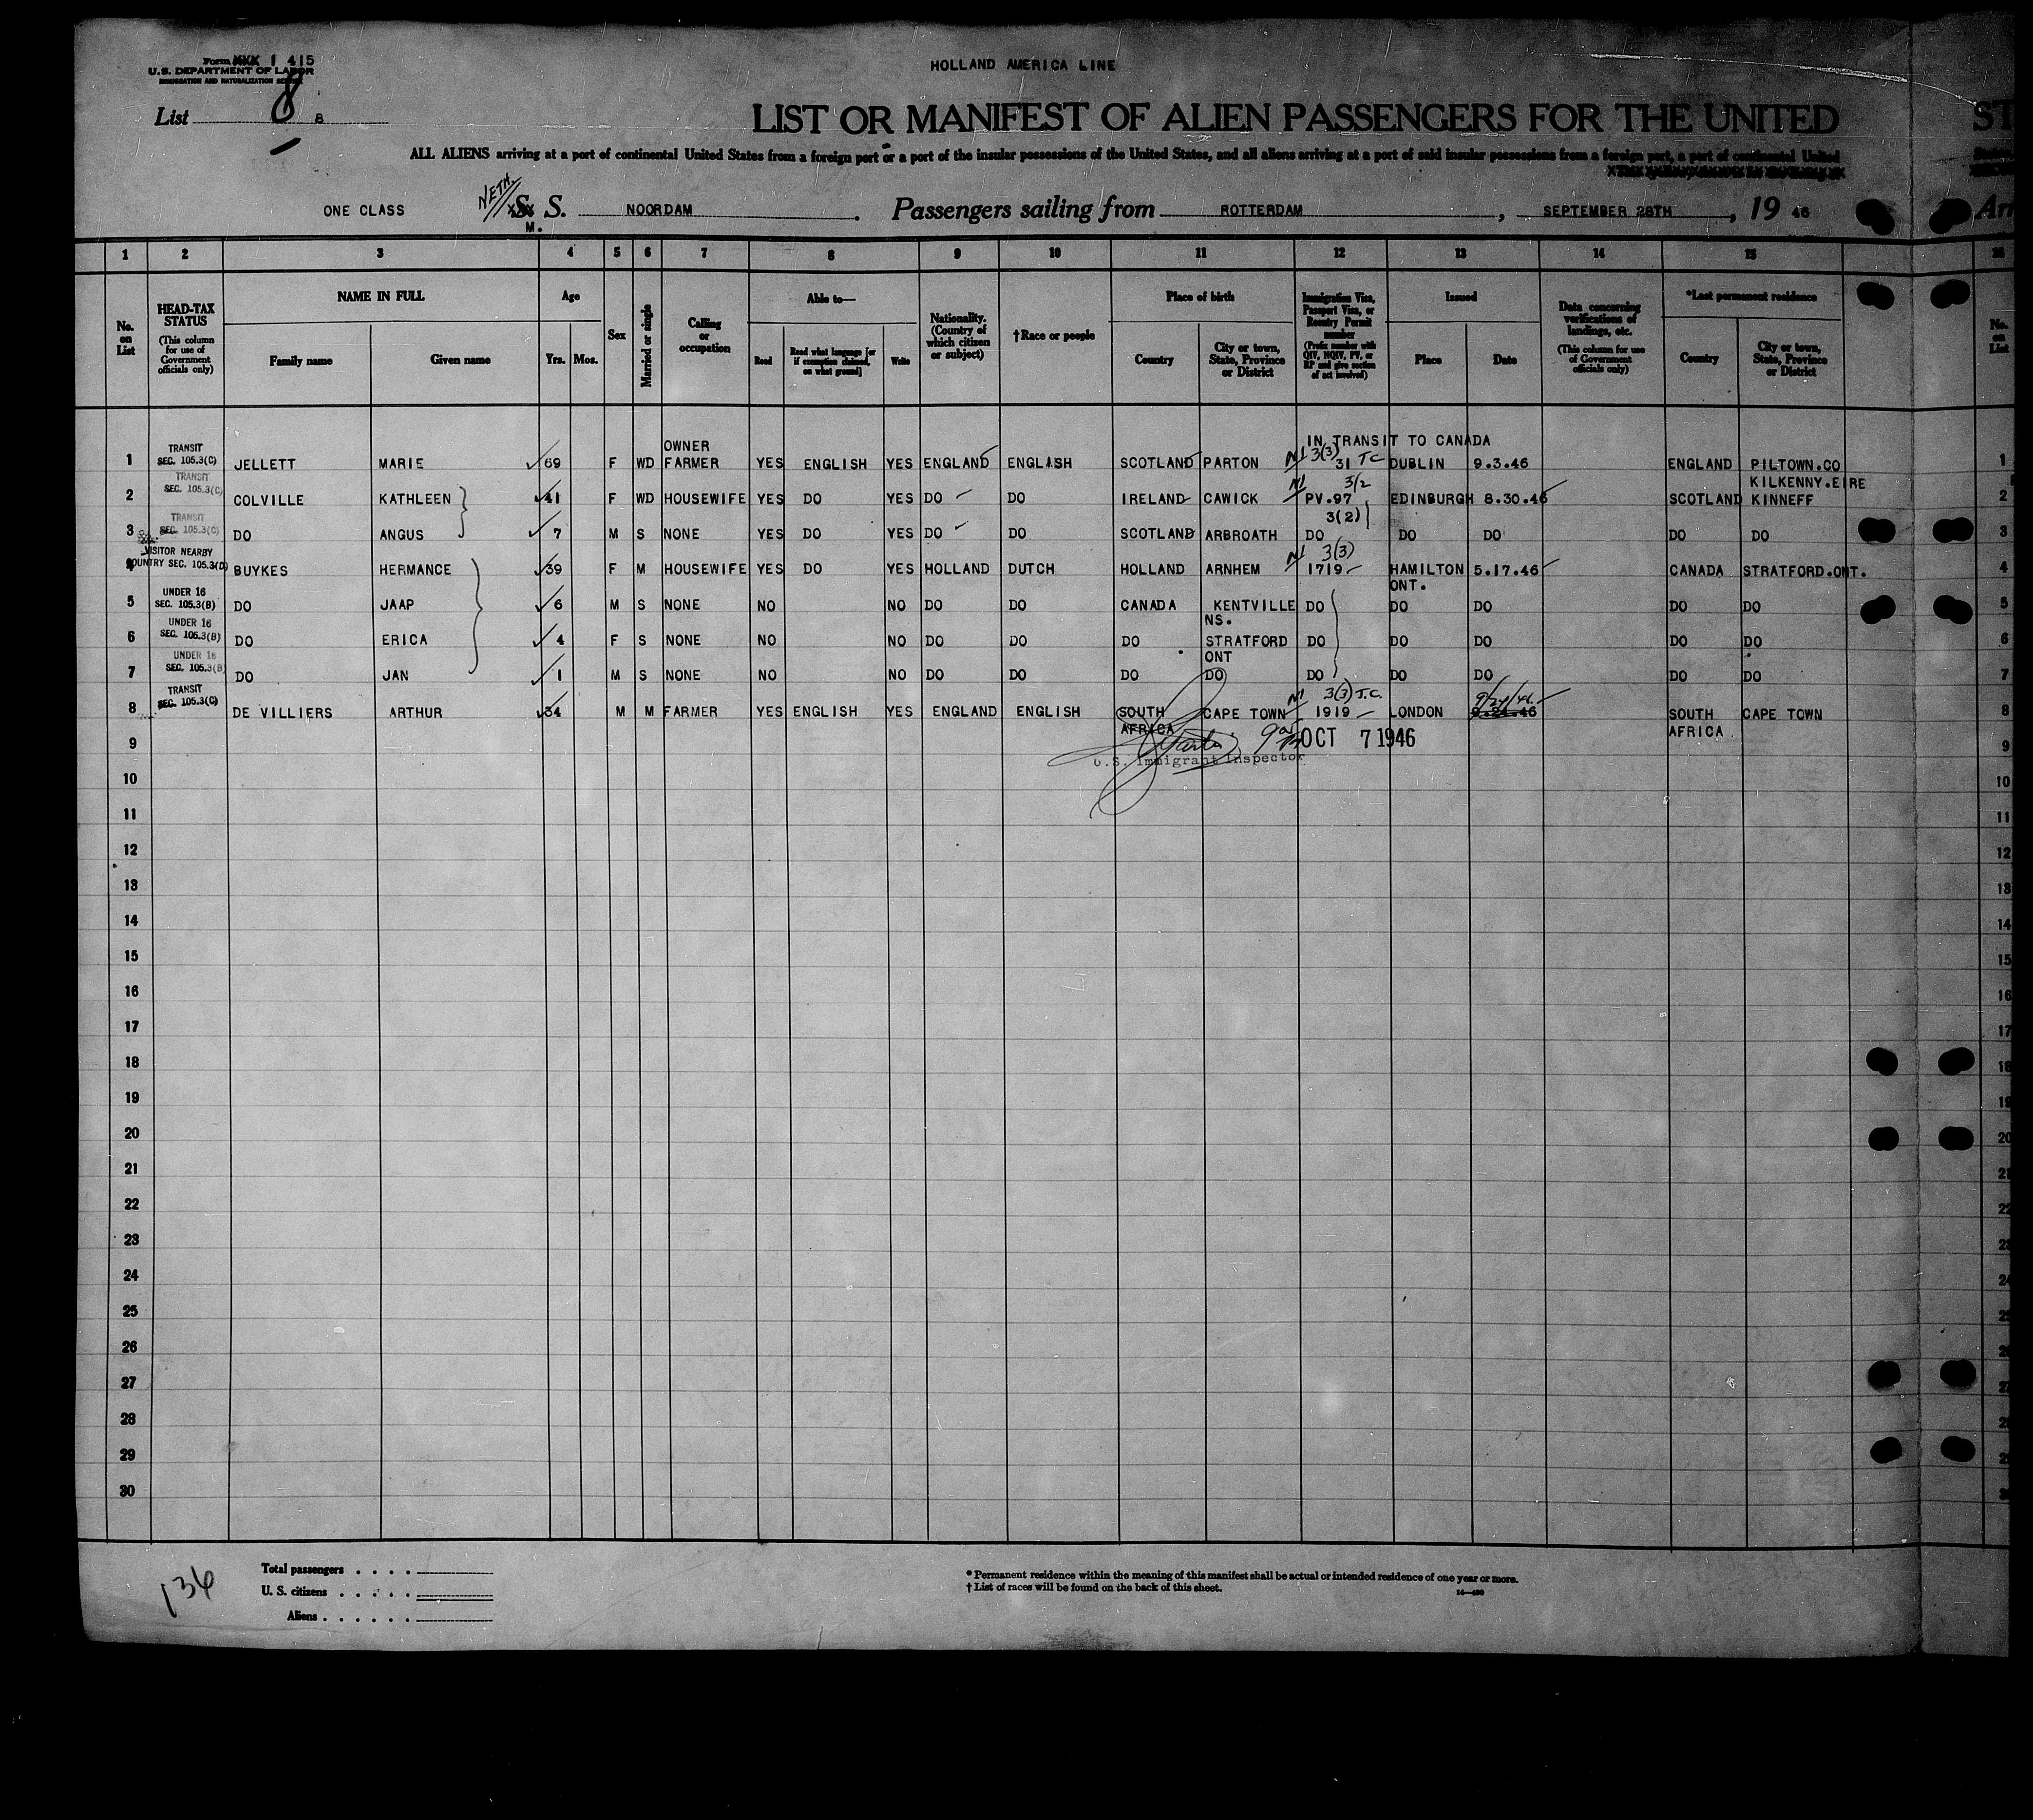 Form XXX I 415
HOLLAND AMERICA LINE
U.S. DEPARTMENT OF LABOR
IMMIGRATION AND NATURALIZATION SERVICE
List 8 8
LIST OR MANIFEST OF ALIEN PASSENGERS FOR THE UNITED ST
ALL ALIENS arriving at a port of continental United States from a foreign port or a port of the insular possessions of the United States, and all aliens arriving at a port of said insular possessions from a foreign port, a port of continental United
ONE CLASS NETH. S. S. NOORDAM. Passengers sailing from ROTTERDAM, SEPTEMBER 28TH, 19 46 Arr
M.
1 2 3 4 5 6 7 8 9 10 11 12 13 14 15 16
No. on List
HEAD-TAX STATUS (This column for use of Government officials only)
NAME IN FULL Family name Given name
Age Yrs. Mos.
Sex
Married or single
Calling or occupation
Able to— Read Read what language [or if exemption claimed, on what ground] Write
Nationality. (Country of which citizen or subject)
†Race or people
Place of birth Country City or town, State, Province or District
Immigration Visa, Passport Visa, or Reentry Permit number (Prefix number with QIV, NQIV, PV, or RP and give section of act involved)
Issued Place Date
Data concerning verifications of landings, etc. (This column for use of Government officials only)
*Last permanent residence Country City or town, State, Province or District
No. on List
TRANSIT OWNER IN TRANSIT TO CANADA
1 SEC. 105.3(C) JELLETT MARIE 69 F WD FARMER YES ENGLISH YES ENGLAND ENGLISH SCOTLAND PARTON 3(3) 31 TC DUBLIN 9.3.46 ENGLAND PILTOWN.CO 1
TRANSIT 3/2 KILKENNY.EIRE
2 SEC. 105.3(C) COLVILLE KATHLEEN 41 F WD HOUSEWIFE YES DO YES DO DO IRELAND CAWICK PV.97 EDINBURGH 8.30.46 SCOTLAND KINNEFF 2
TRANSIT 3(2)
3 SEC. 105.3(C) DO ANGUS 7 M S NONE YES DO YES DO DO SCOTLAND ARBROATH DO DO DO DO DO 3
VISITOR NEARBY 3(3)
4 COUNTRY SEC. 105.3(D) BUYKES HERMANCE 39 F M HOUSEWIFE YES DO YES HOLLAND DUTCH HOLLAND ARNHEM 1719 HAMILTON 5.17.46 CANADA STRATFORD.ONT. 4
UNDER 16 ONT.
5 SEC. 105.3(B) DO JAAP 6 M S NONE NO NO DO DO CANADA KENTVILLE DO DO DO DO DO 5
UNDER 16 NS.
6 SEC. 105.3(B) DO ERICA 4 F S NONE NO NO DO DO DO STRATFORD DO DO DO DO DO 6
UNDER 16 ONT
7 SEC. 105.3(B) DO JAN 1 M S NONE NO NO DO DO DO DO DO DO DO DO DO 7
TRANSIT 3(3) T.C.
8 SEC. 105.3(C) DE VILLIERS ARTHUR 34 M M FARMER YES ENGLISH YES ENGLAND ENGLISH SOUTH CAPE TOWN 1919 LONDON SOUTH CAPE TOWN 8
9 AFRICA OCT 7 1946 AFRICA 9
U.S. Immigrant Inspector
10 10
11 11
12 12
13 13
14 14
15 15
16 16
17 17
18 18
19 19
20 20
21 21
22 22
23 23
24 24
25 25
26 26
27 27
28
29
30
136
Total passengers . . . .
U. S. citizens . . . . .
Aliens . . . . . .
* Permanent residence within the meaning of this manifest shall be actual or intended residence of one year or more.
† List of races will be found on the back of this sheet.